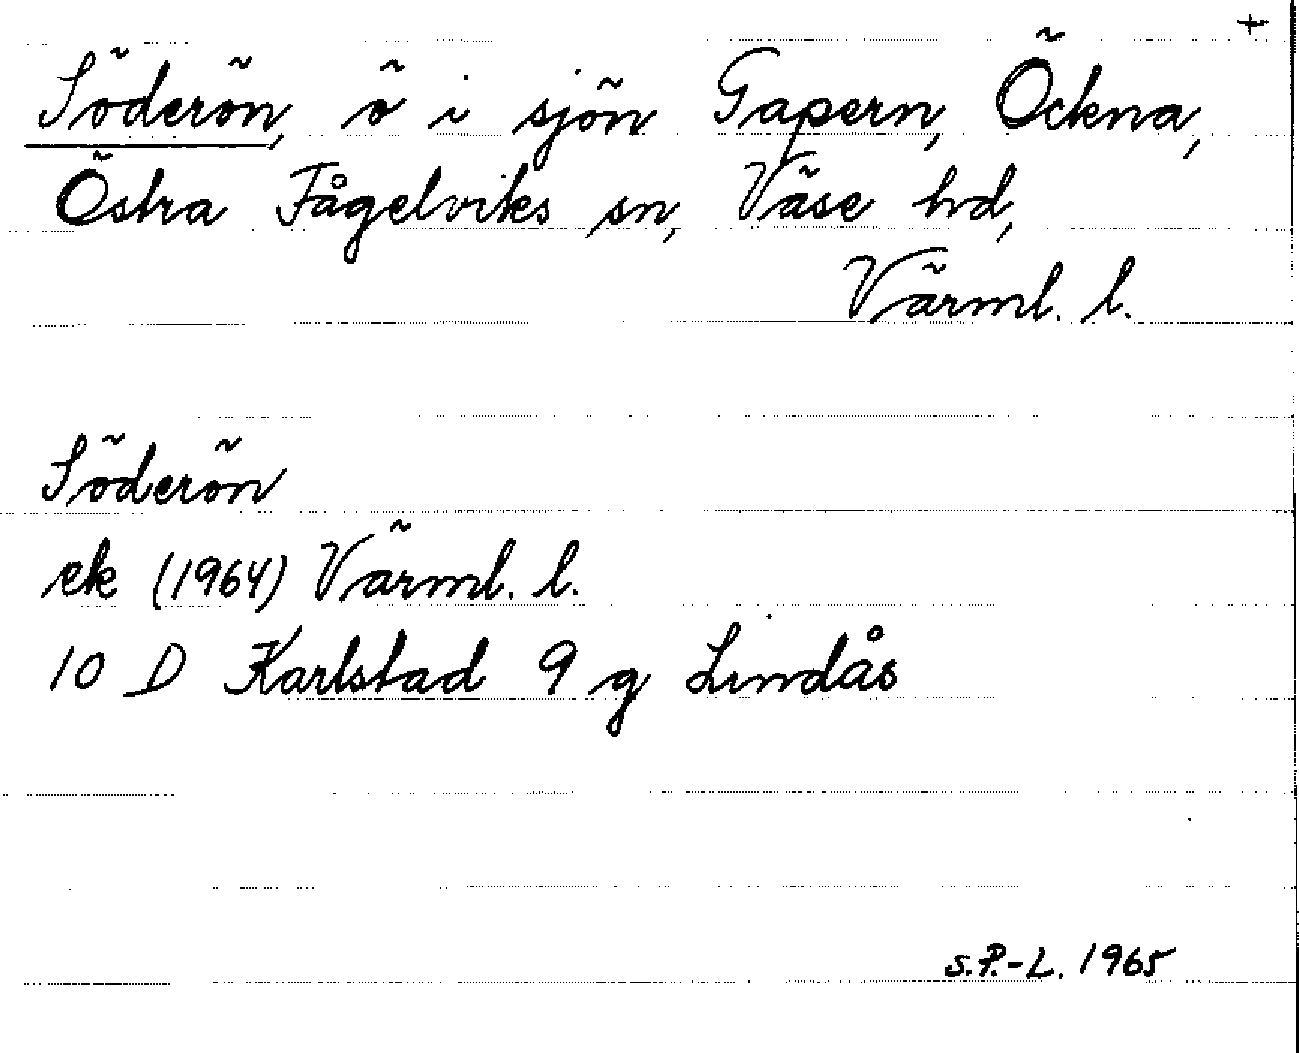 +
Söderön, ö i sjön Gapern, Öckna,
Östra Fågelviks sn, Väse hd,
Värml. l.
Söderön
ek (1964) Värml. l.
10 D Karlstad 9 g Lindås
S.P.-L. 1965